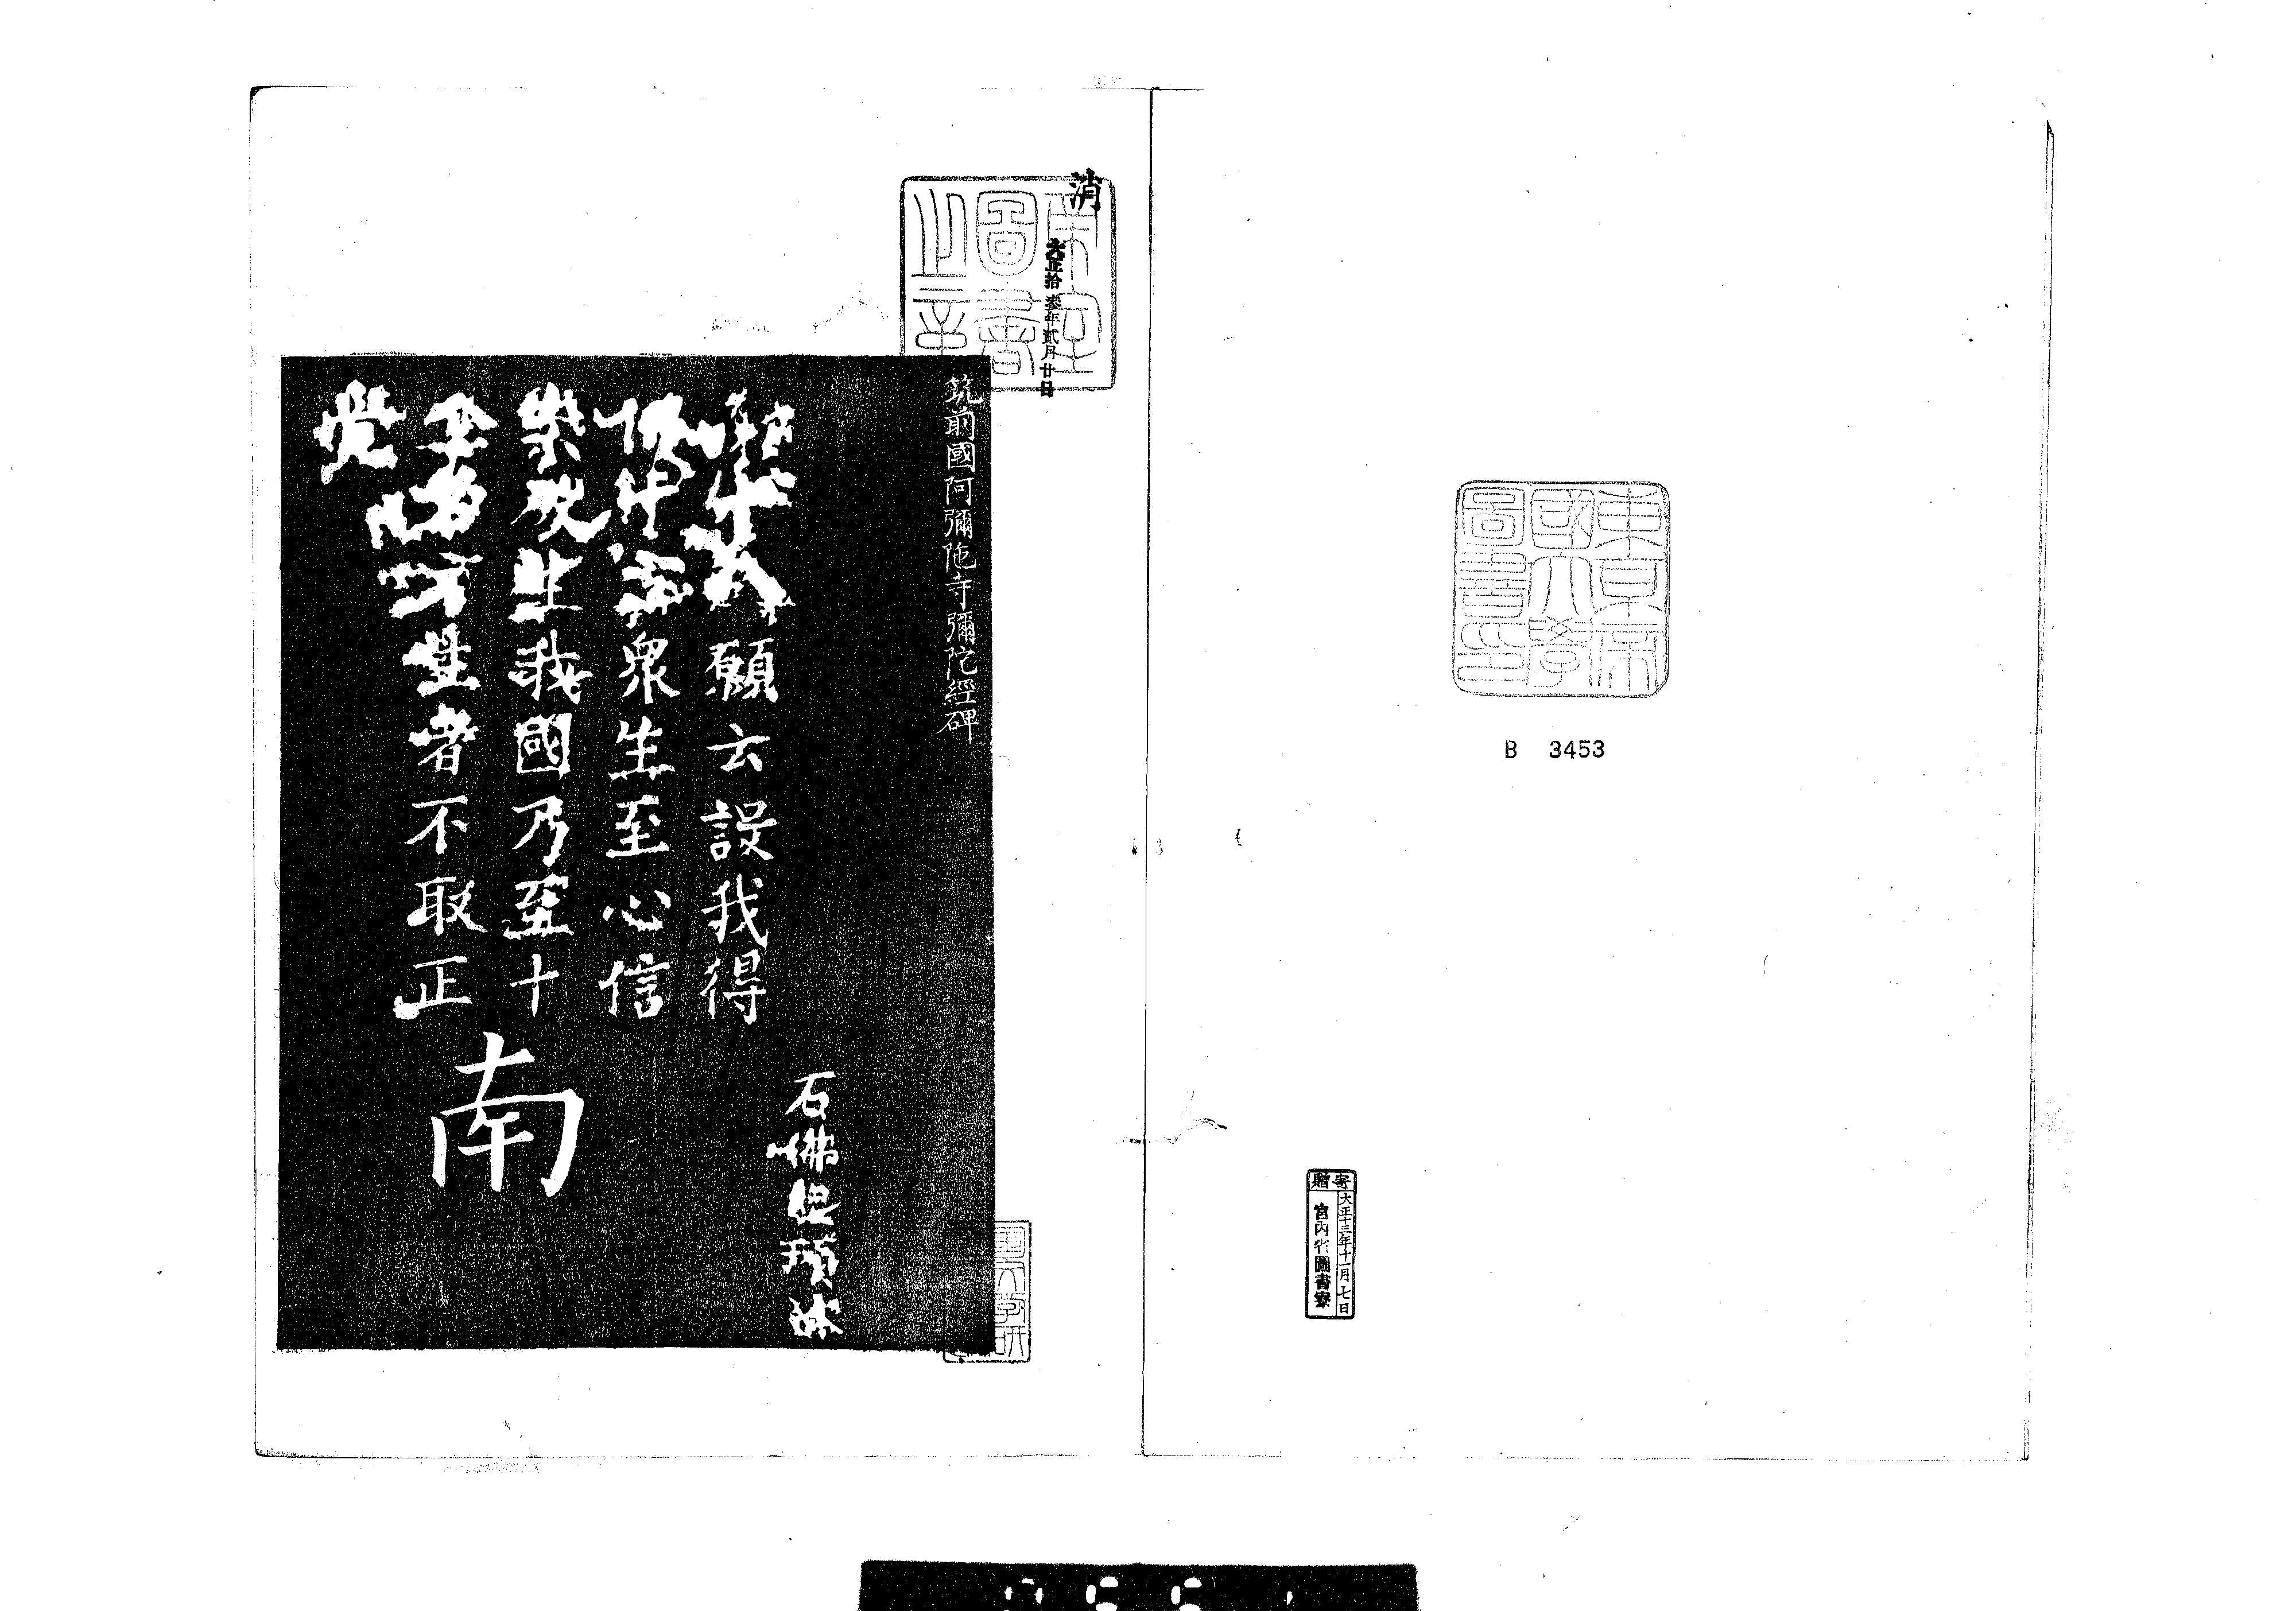 東京帝
國大學
圖書印
B 3453
寄贈
大正十三年十一月七日
宮内省圖書寮
帝室
圖書
之章
消
大正拾參年貳月廿日
筑前國阿彌陁寺彌陀經碑
石佛
願云設我得
佛十方衆生至心信
樂欲生我國乃至十
念若不生者不取正
覺
南